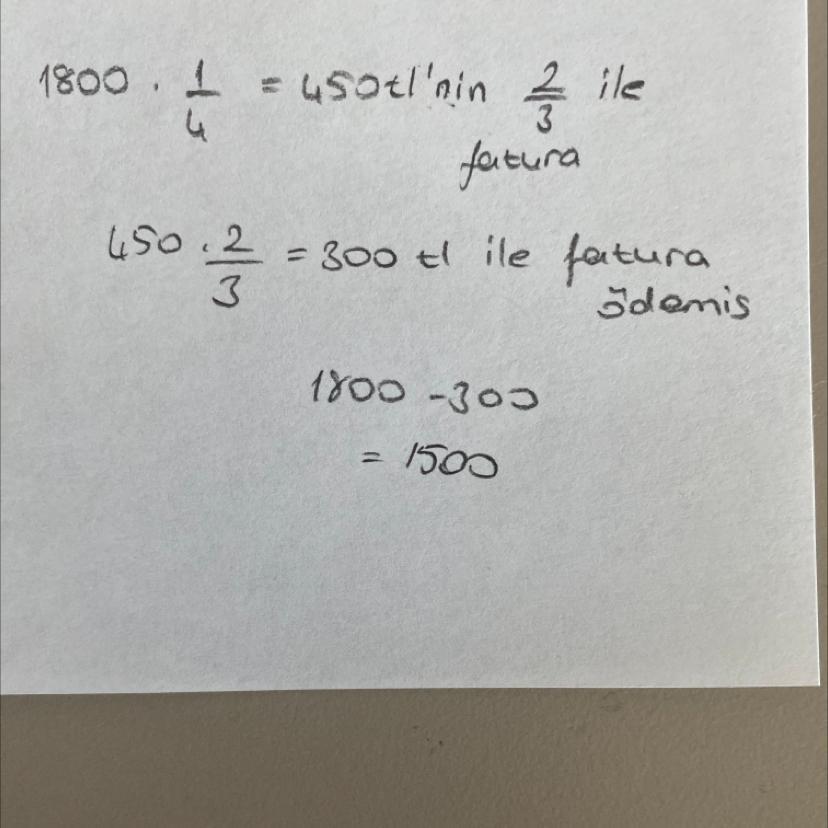 1800 . 1/4 = 450tl'nin 2/3 ile
fatura
450 . 2/3 = 300 tl ile fatura
ödemis
1800 - 300
= 1500